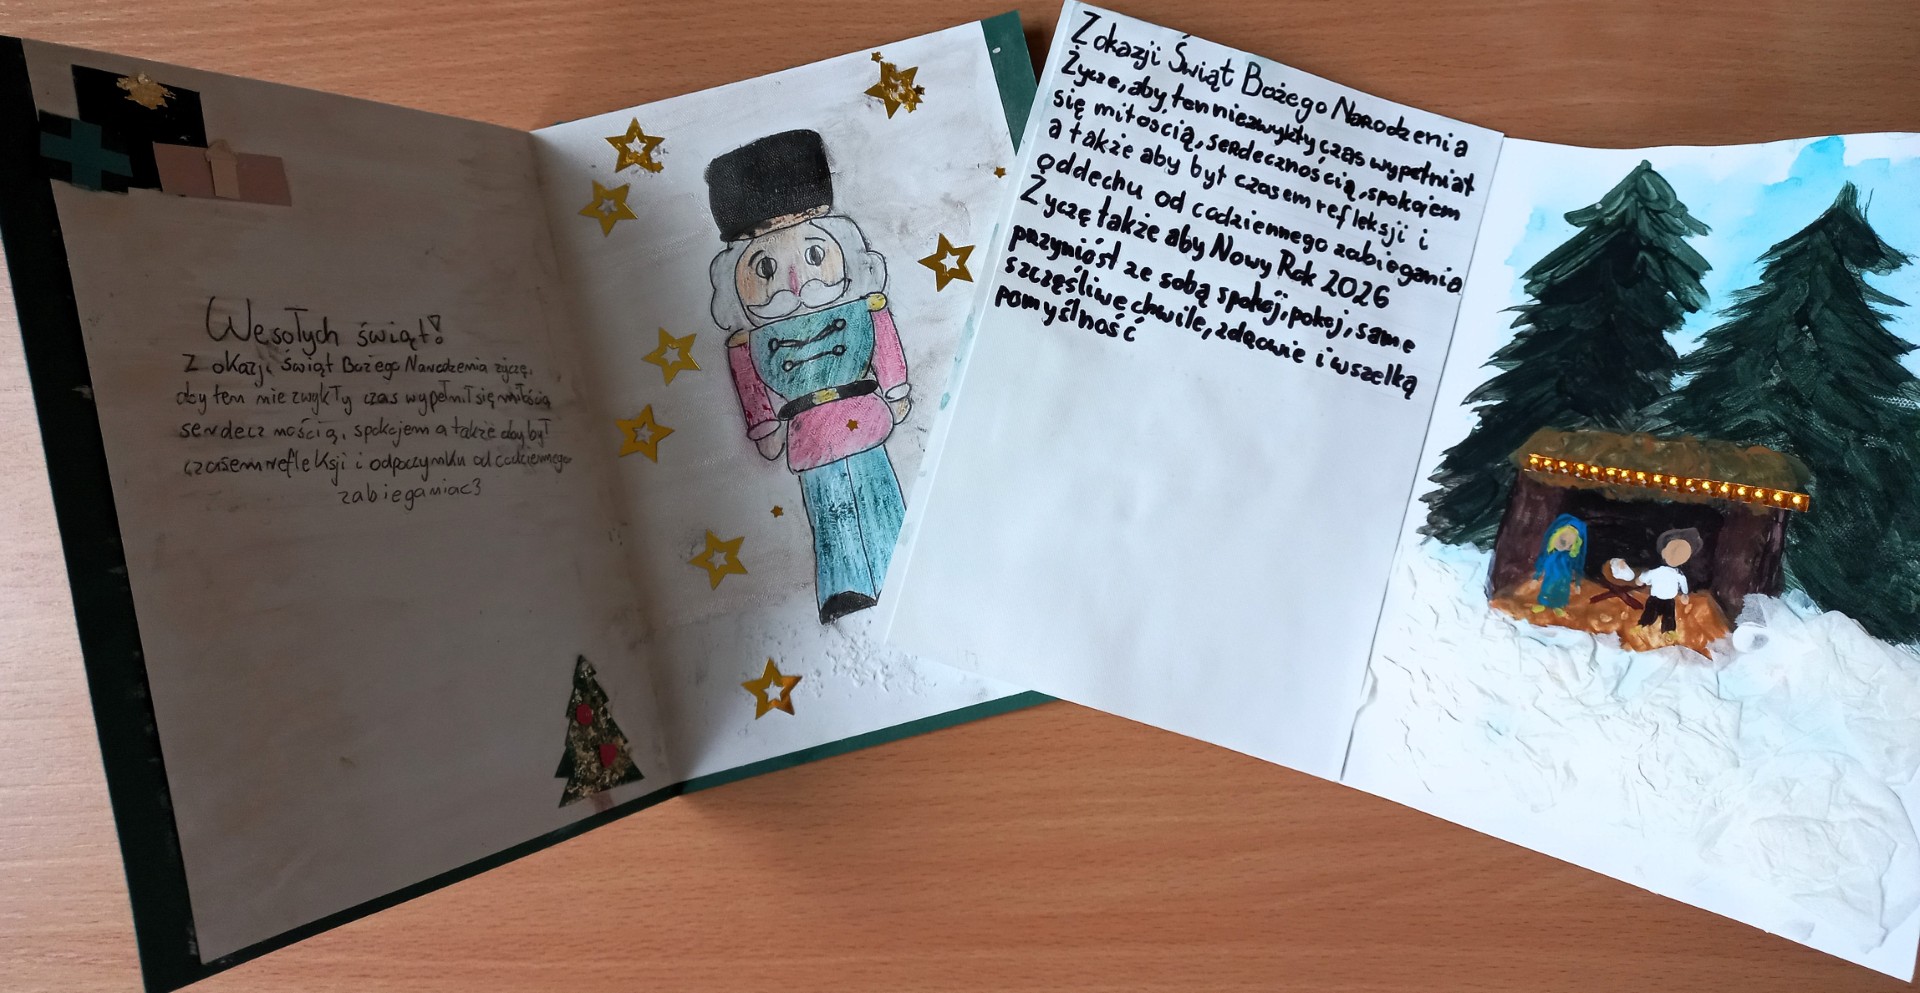 Wesołych świąt!
Z okazji świąt Bożego Narodzenia życzę,
aby ten niezwykły czas wypełnił się miłością
serdecznością, spokojem a także aby był
czasem refleksji i odpoczynku od codziennego
zabiegania<3
Z okazji Świąt Bożego Narodzenia
Życze, aby ten niezwykły czas wypełniał
się miłością, serdecznością, spokojem
a także aby był czasem refleksji i
oddechu od codziennego zabiegania
Życzę także aby Nowy Rok 2026
przyniósł ze sobą spokój, pokój, same
szczęśliwe chwile, zdrowie i wszelką
pomyślność